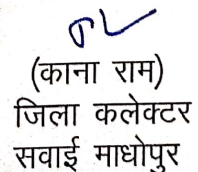 (काना राम)
जिला कलेक्टर
सवाई माधोपुर